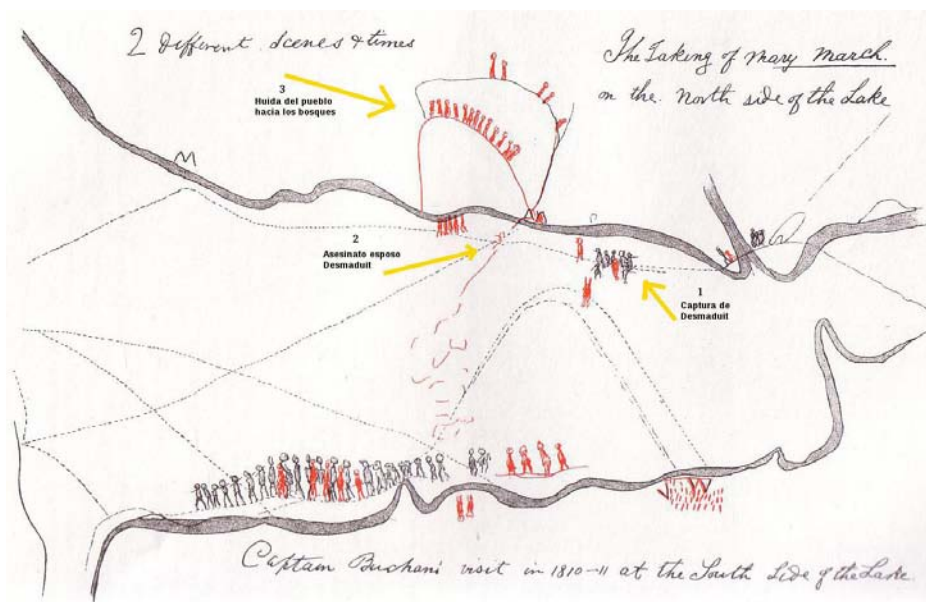 2 Different Scenes & times
The Taking of Mary March.
on the North side of the Lake
3
Huida del pueblo
hacia los bosques
2
Asesinato esposo
Desmaduit
1
Captura de
Desmaduit
Captain Buchan's visit in 1810-11 at the South Side of the Lake.